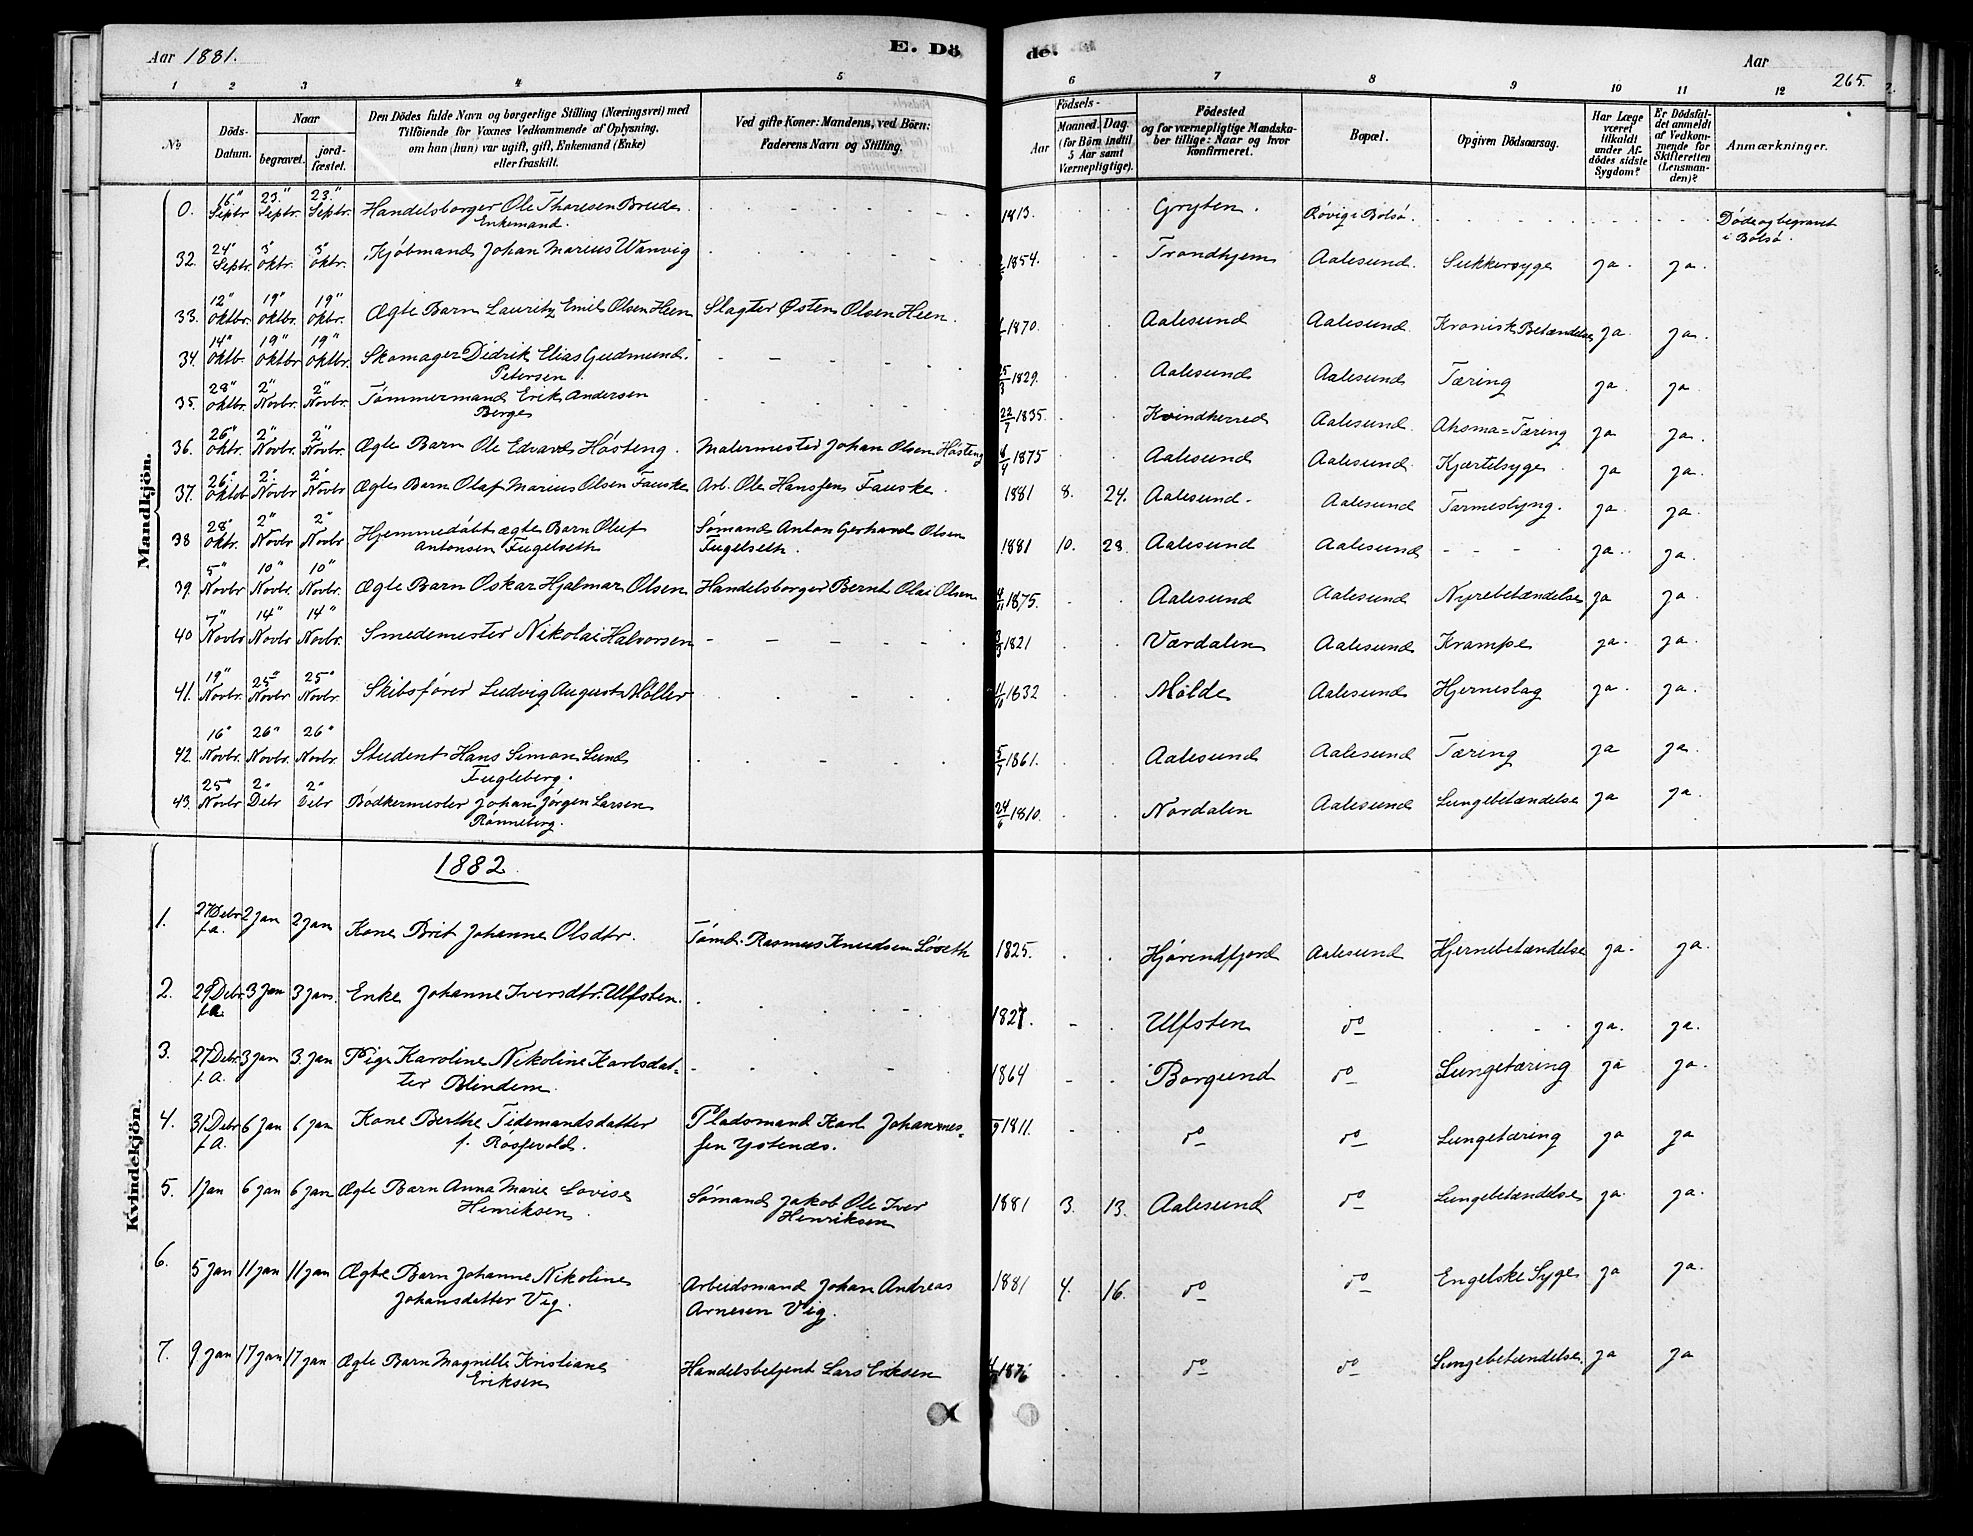 Aar 1881.
E. Dö
de.
Aar
265.
1 2 3 4 5 6 7 8 9 10 11 12
No
Döds-Datum.
Naar
begravet.
jord-fæstet.
Den Dödes fulde Navn og borgerlige Stilling (Næringsvei) med
Tilföiende for Voxnes Vedkommende af Oplysning,
om han (hun) var ugift, gift, Enkemand (Enke)
eller fraskilt.
Ved gifte Koner: Mandens, ved Börn:
Faderens Navn og Stilling.
Födsels-
Aar
Maaned. Dag.
(for Börn indtil
5 Aar samt
Værnepligtige).
Födested
og for værnepligtige Mandska-
ber tillige: Naar og hvor
konfirmeret.
Bopæl.
Opgiven Dödsaarsag.
Har Læge
været
tilkaldt
under Af-
dödes sidste
Sygdom?
Er Dödsfal-
det anmeldt
af Vedkom-
mende for
Skifteretten
(Lensman-
den)?
Anmærkninger.
Mandkjön.
0. 16" Septr 23" Septr. 23" Septr. Handelsborger Ole Thoresen Brude. 1813. Gryten. Røvig i Bolsø. Døde og begravet
Enkemand. i Bolsø.
32. 24" Septr. 5" oktr. 5" oktr. Kjøbmand Johan Marius Wanvig 1854. Trondhjem Aalesund. Sukkersyge ja. ja.
33. 12" oktbr. 19" oktbr. 19" oktbr. Ægte Barn Lauritz Emil Olsen Heen Slagter Østen Olsen Heen. 1870. Aalesund Aalesund. Kronisk Betændelse ja. ja.
34. 14" oktb. 19" oktbr 19" oktbr. Skomager Didrik Elias Gudmund. 25/3 1829. Aalesund Aalesund Tæring ja. ja
Petersen.
35. 28" oktbr. 2" Novbr. 2" Novbr. Tømmermand Erik Andersen 22/7 1835. Kvindherred Aalesund. Ahsma=Tæring ja ja.
Berge
36. 26" oktr. 2" Novbr. 2" Novbr. Ægte Barn Ole Edvard Høsteng. Malermester Johan Olsen Høsteng 1875 Aalesund Aalesund. Kjærtelsyge ja ja.
37. 26" oktbr 2" Novbr 2" Novbr Ægte Barn Olaf Marius Olsen Fauske Arb. Ole Hanssen Fauske. 1881 8. 24. Aalesund. Aalesund Tarmeslyng. ja. ja.
38 28" oktr. 2" Novbr 2" Novbr. Hjemmedøbt ægte Barn Oluf Sømand Anton Gerhard Olsen 1881 10. 28. Aalesund Aalesund ja.. ja.
Antonsen Fugelseth Fugelseth.
39. 5" Novbr 10" Novbr. 10" Novbr. Ægte Barn Oskar Hjalmar Olsen Handelsborger Bernt Olai Olsen 1875. Aalesund Aalesund Nyrebetændelse ja ja.
40 7" Novbr 14" Novbr 14" Novbr. Smedemester Nikolai Halvorsen 1821 Værdalen Aalesund Krampe ja. ja.
41. 19" Novbr. 25" Novbr 25" Novbr. Skibsfører Ludvig August Møller 1832 Molde Aalesund Hjerneslag ja. ja.
42. 16" Novbr. 26" Novbr. 26" Novbr. Student Hans Simon Lund 5/7 1861. Aalesund Aalesund Tæring ja ja.
Fugleberg.
43. 25" Novbr 2" Debr 2" Debr Bødkermester Johan Jørgen Larsen 24/6 1810. Nordalen Aalesund Lungebetændelse ja ja.
Rønneberg.
1882
Kvindekjön.
1. 27 Debr 2 Jan 2 Jan Kone Brit Johanne Olsdtr. Tømb. Rasmus Knudsen Løseth 1825. Hjørendfjord Aalesund Hjernebetændelse ja. ja.
f.a.
2. 29 Debr. 3 Jan 3 Jan. Enke Johanne Iversdtr. Ulfsten. Ulfsten do ja. ja.
f.a.
3. 27 Debr. 3 Jan 3. Jan Pige Karoline Nikoline Karlsdat- 1864 Borgund do Lungetæring ja ja.
f.A. ter Blindem.
4. 31 Debr 6 Jan 6 Jan Kone Berthe Tidemandsdatter Pladsmand Karl Johannes- 1811. do do Lungetæring ja ja
f.A. f. Røssevold. sen Ystenæs.
5. 1 Jan 6 Jan 6 Jan Ægte Barn Anna Marie Lovise Sømand Jakob Ole Iver 1881 3. 13. Aalesund do Lungebetændelse ja. ja.
Henriksen. Henriksen
6. 5 Jan 11 Jan 11 Jan Ægte Barn Johanne Nikoline Arbeidsmand Johan Andreas 1881 4. 16. do do Engelske Syge ja ja.
Johansdatter Vig. Arnesen Vig.
7. 9 Jan 17 Jan 17 Jan Ægte Barn Magnille Kristiane Handelsbetjent Lars Eriksen 1876 do do Lungebetændelse. ja ja
Eriksen